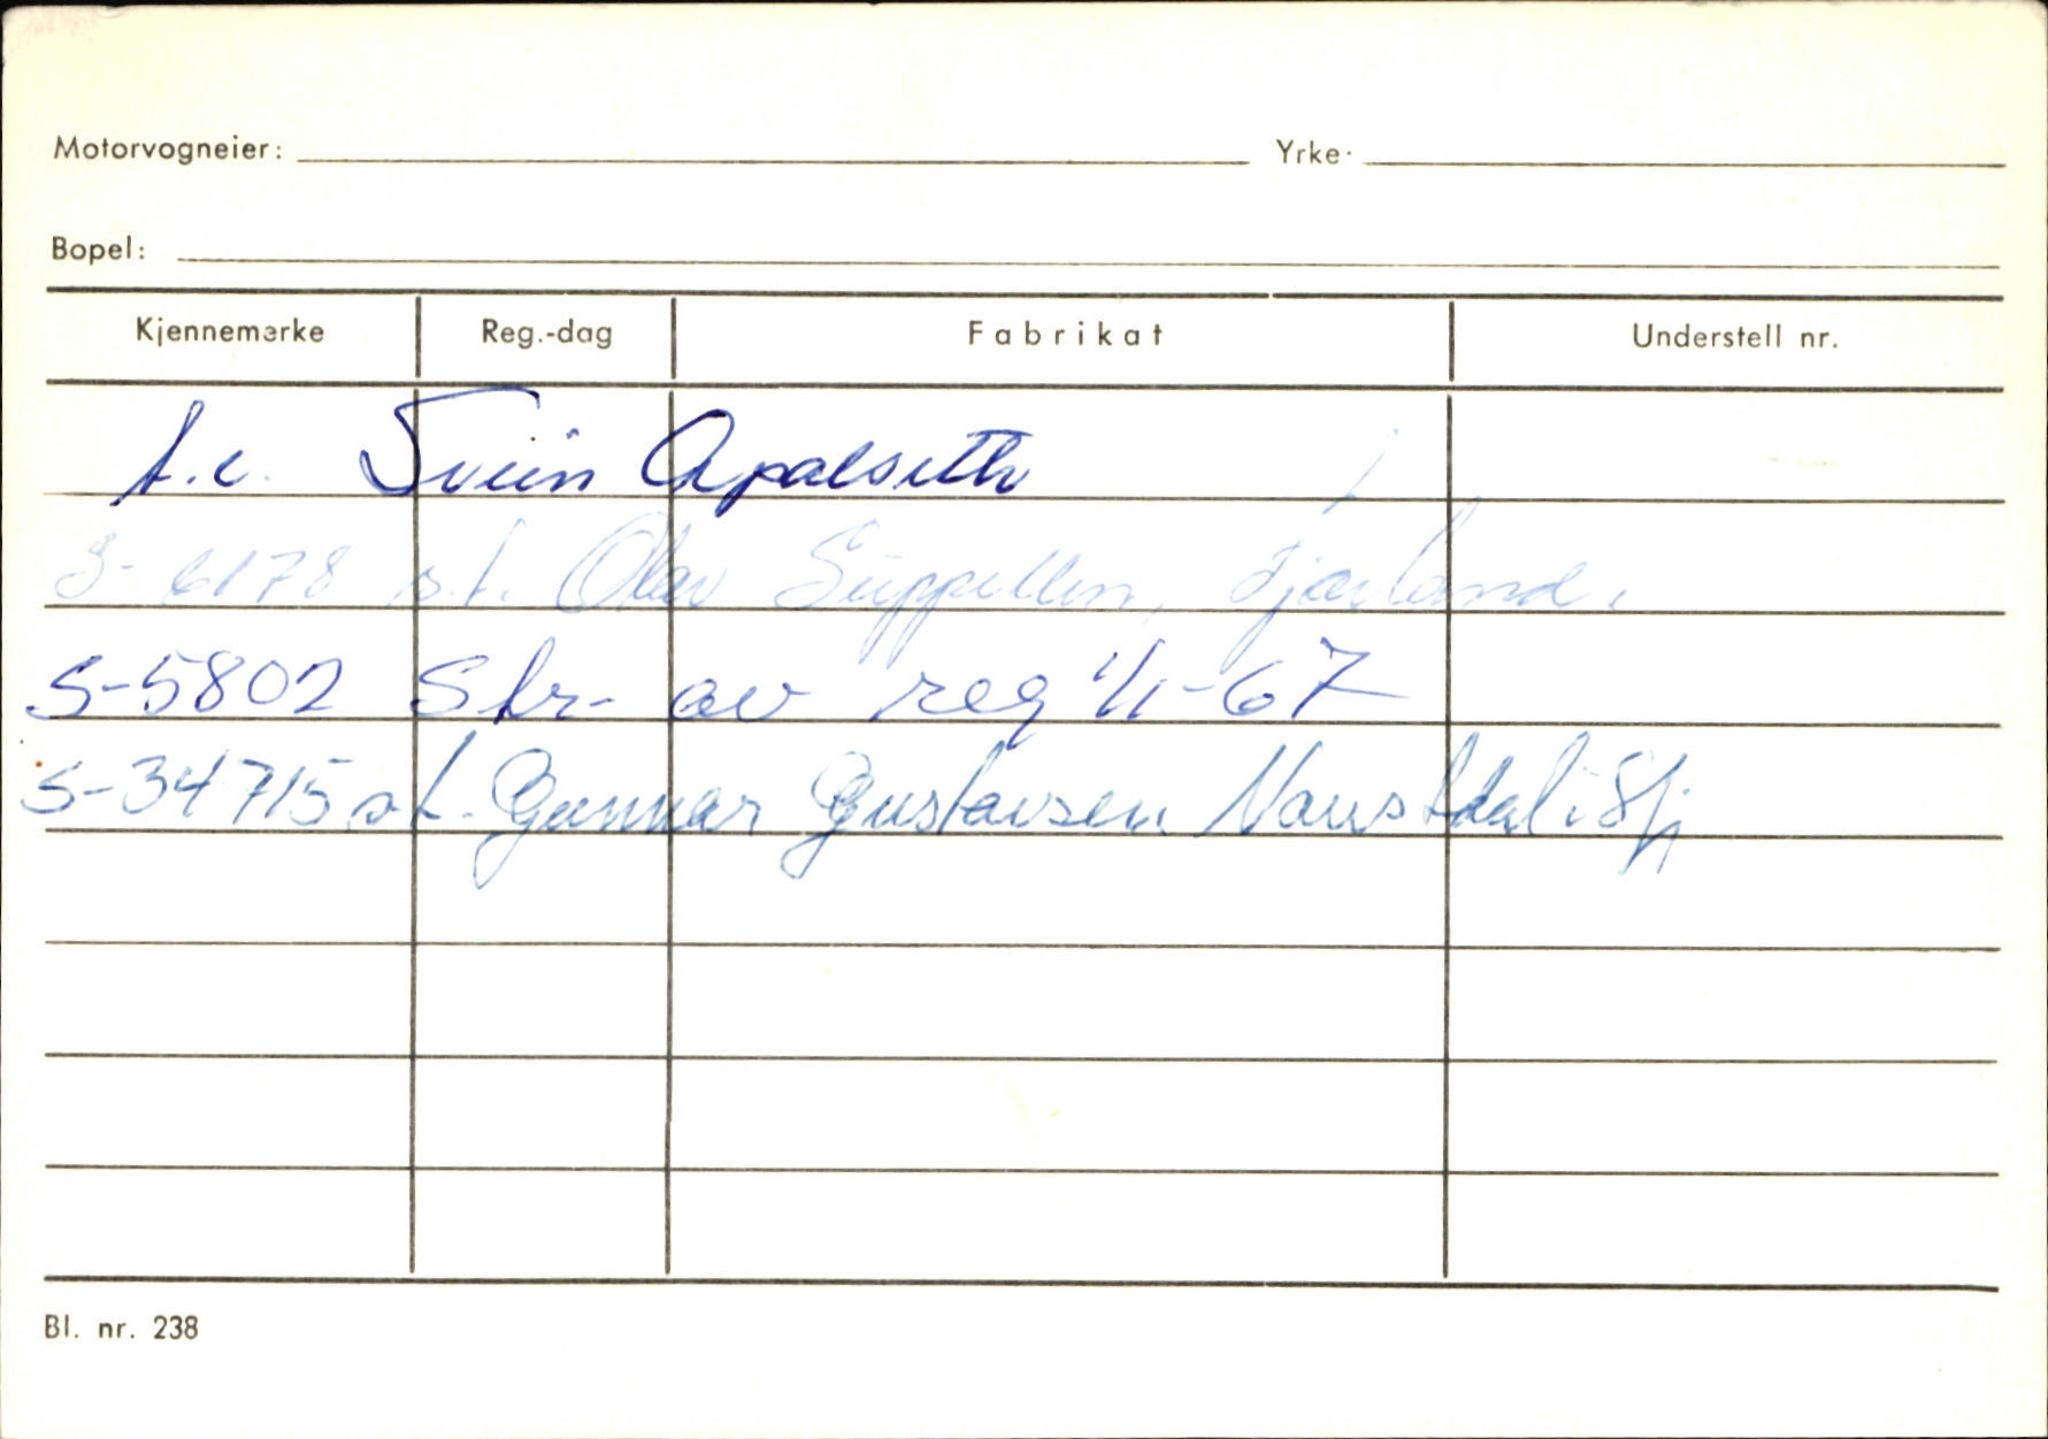 Motorvogneier: Yrke:
Bopel:
Kjennemerke Reg.-dag Fabrikat Understell nr.
Svein Apalseth
S-6178 s.t. Olav Suppellen, Fjærland.
S-5802 Slr- av reg 1/1-67
S-34715 s.t. Gunnar Gustavsen Naustdal i S/fj
Bl. nr. 238